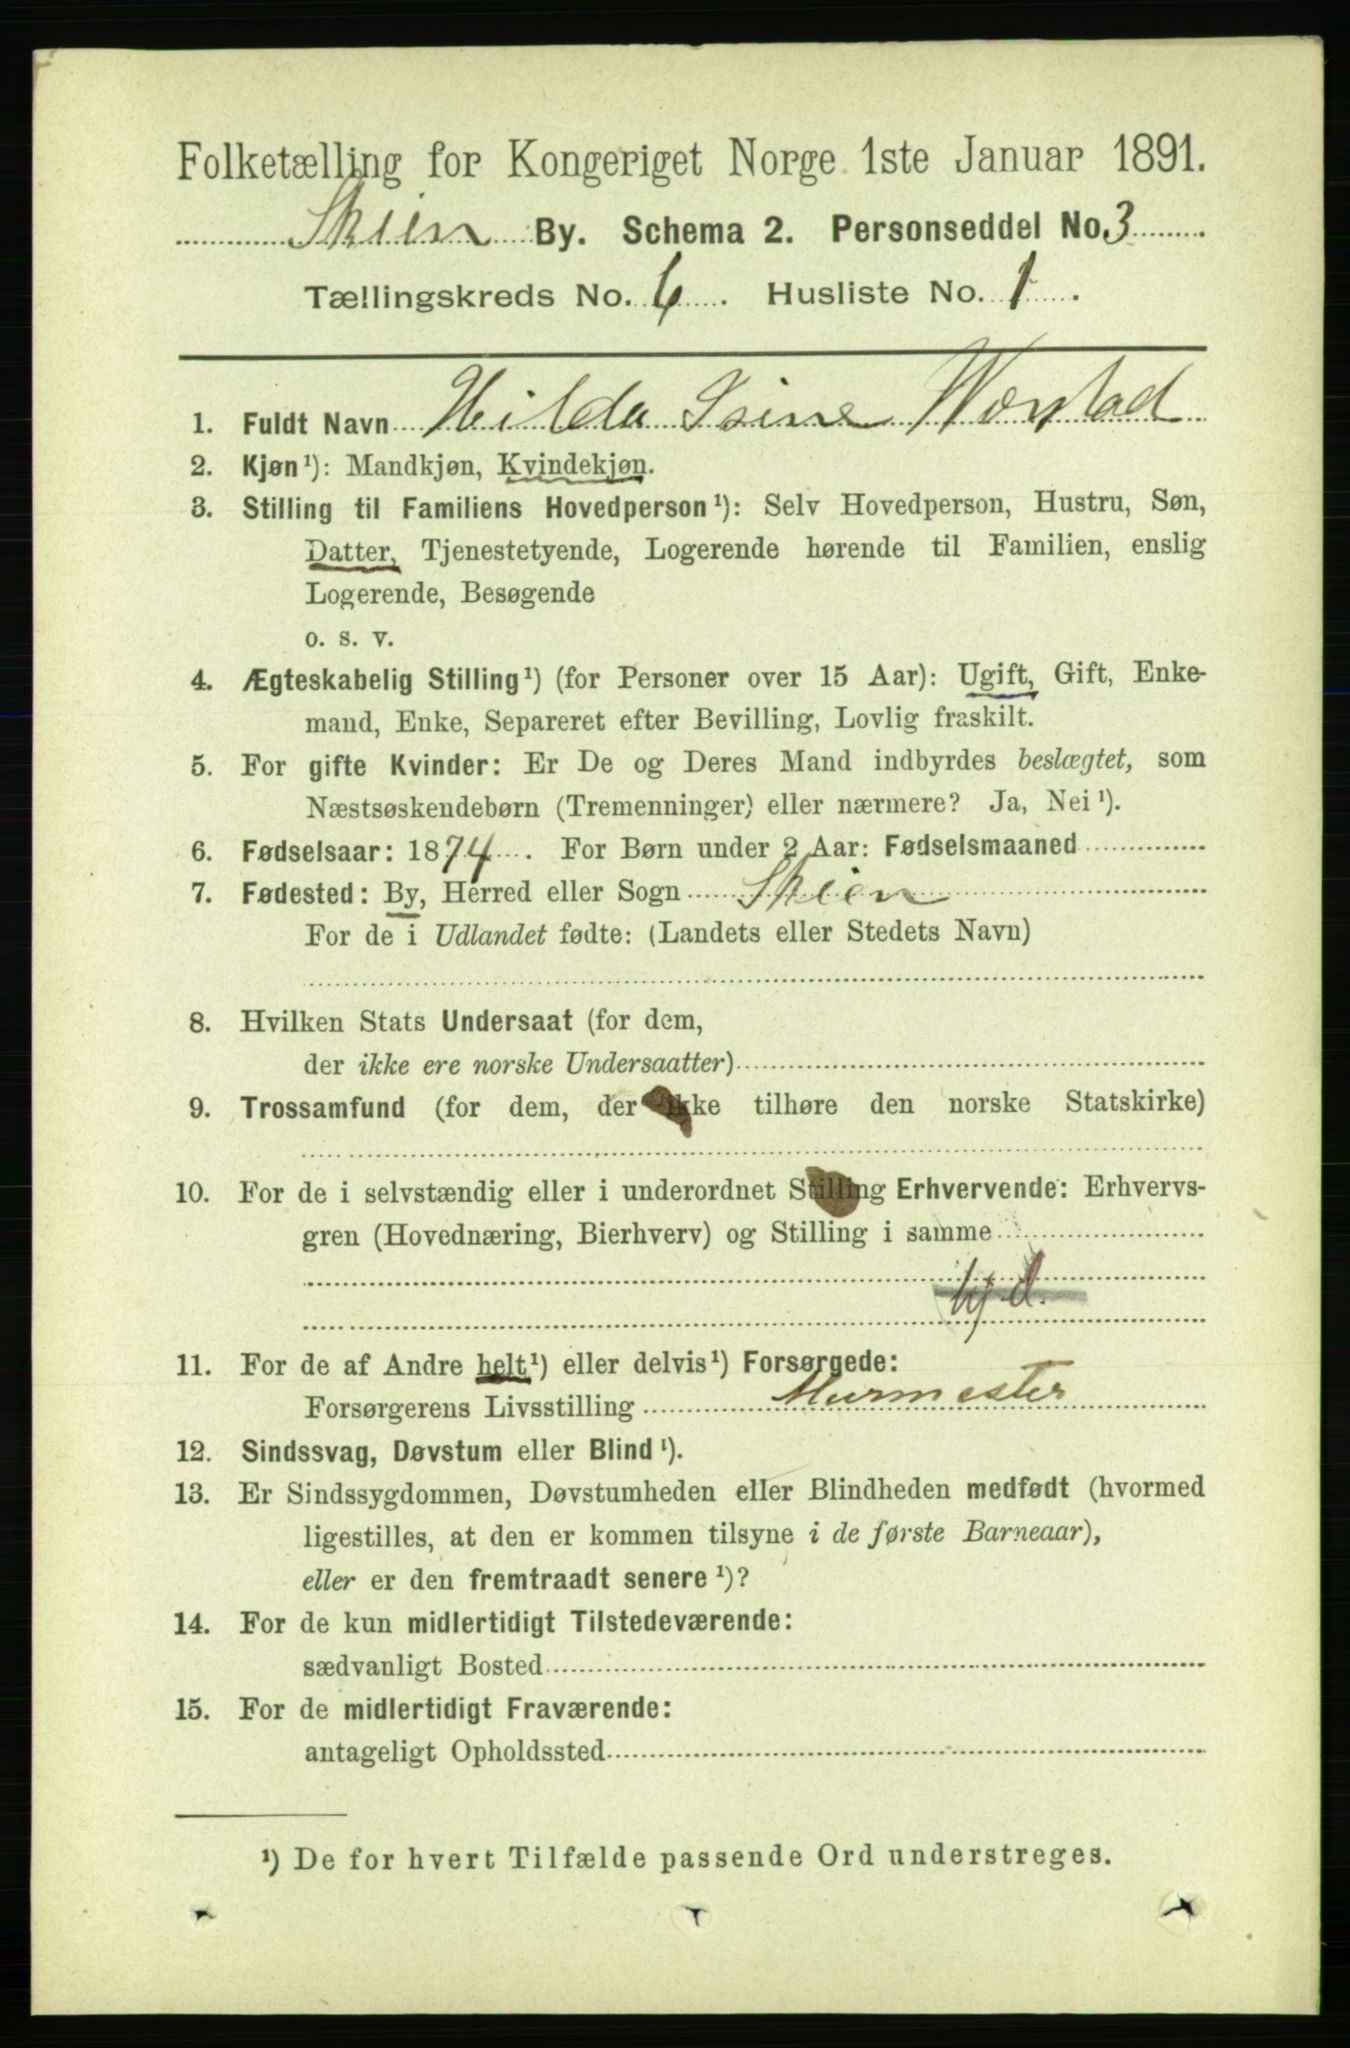 Folketælling for Kongeriget Norge 1ste Januar 1891.
Skien By. Schema 2. Personseddel No. 3
Tællingskreds No. 6. Husliste No. 1.
1. Fuldt Navn Hilda Isine
2. Kjøn¹): Mandkjøn, Kvindekjøn.
3. Stilling til Familiens Hovedperson¹): Selv Hovedperson, Hustru, Søn,
Datter, Tjenestetyende, Logerende hørende til Familien, enslig
Logerende, Besøgende
o. s. v.
4. Ægteskabelig Stilling¹) (for Personer over 15 Aar): Ugift, Gift, Enke-
mand, Enke, Separeret efter Bevilling, Lovlig fraskilt.
5. For gifte Kvinder: Er De og Deres Mand indbyrdes beslægtet, som
Næstsøskendebørn (Tremenninger) eller nærmere? Ja, Nei¹).
6. Fødselsaar: 1874. For Børn under 2 Aar: Fødselsmaaned
7. Fødested: By, Herred eller Sogn Skien
For de i Udlandet fødte: (Landets eller Stedets Navn)
8. Hvilken Stats Undersaat (for dem,
der ikke ere norske Undersaatter)
9. Trossamfund (for dem, der ikke tilhøre den norske Statskirke)
10. For de i selvstændig eller i underordnet Stilling Erhvervende: Erhvervs-
gren (Hovednæring, Bierhverv) og Stilling i samme
hj.d.
11. For de af Andre helt¹) eller delvis¹) Forsørgede:
Forsørgerens Livsstilling Murmester
12. Sindssvag, Døvstum eller Blind¹).
13. Er Sindssygdommen, Døvstumheden eller Blindheden medfødt (hvormed
ligestilles, at den er kommen tilsyne i de første Barneaar),
eller er den fremtraadt senere¹)?
14. For de kun midlertidigt Tilstedeværende:
sædvanligt Bosted
15. For de midlertidigt Fraværende:
antageligt Opholdssted
¹) De for hvert Tilfælde passende Ord understreges.